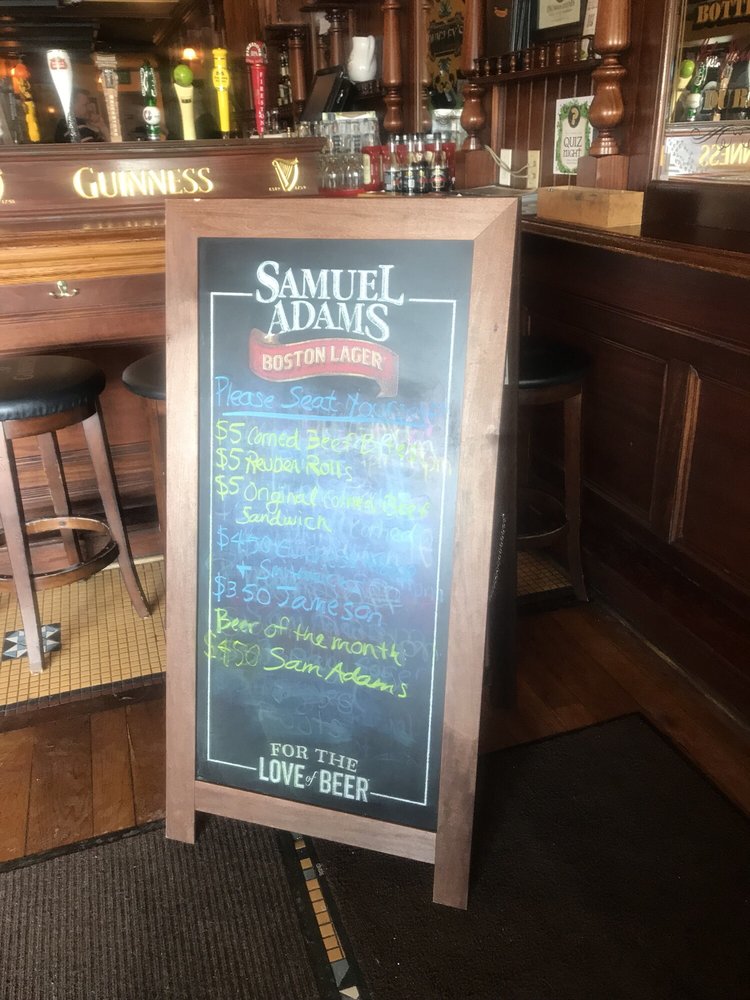 GUINNESS
QUIZ
NIGHT
SAMUEL
ADAMS
BOSTON LAGER
Please Seat
$5 Corned Beef
$5 Reuben Rolls
$5 Original Corned Beef
Sandwich
$450
+
$350 Jameson
Beer of the month
$450 Sam Adams
FOR THE
LOVE of BEER